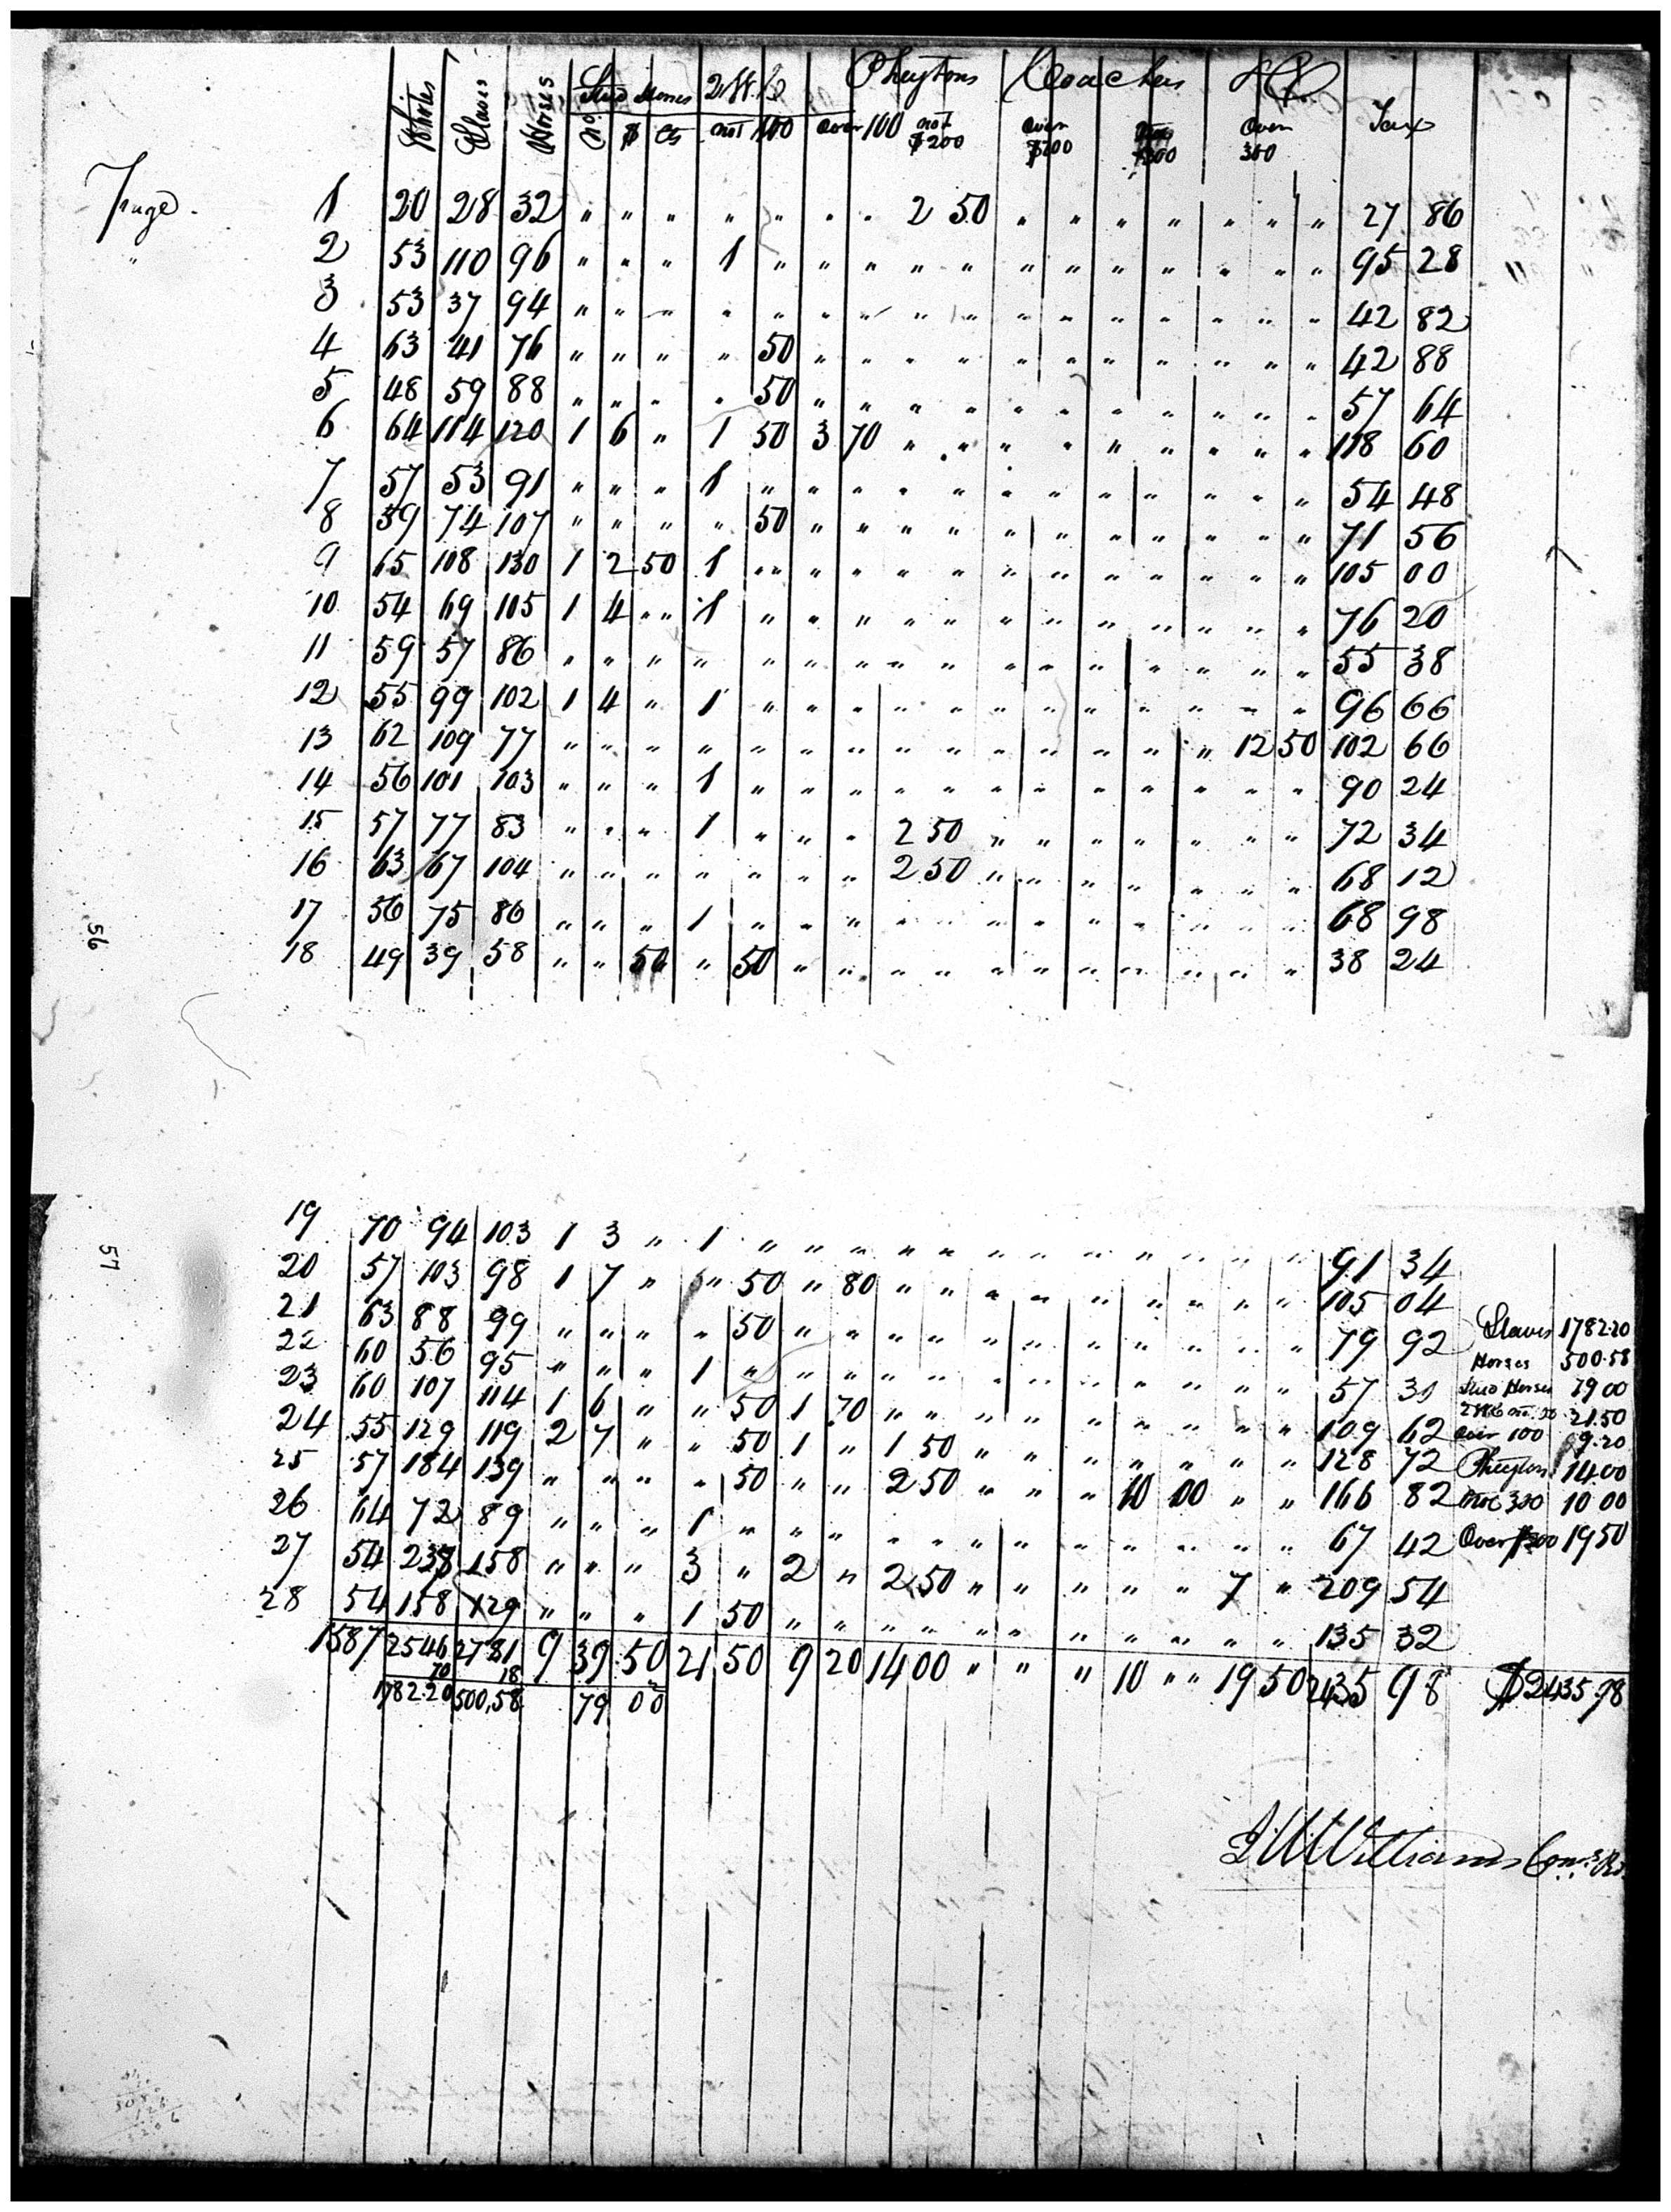 Whites Slaves Horses Stud Horses 2 W. Phaytons Coaches &c
No $ cts not 100 over 100 not $200 over $200 over 300 Tax
Page 1 20 28 32 " " " " " " " 2 50 " " " " " " " 27 86
" 2 53 110 96 " " " 1 " " " " " " " " " " " " 95 28
3 53 37 94 " " " " " " " " " " " " " " " " 42 82
4 63 41 76 " " " " 50 " " " " " " " " " " " 42 88
5 48 59 88 " " " " 50 " " " " " " " " " " " 57 64
6 64 114 120 1 6 " 1 50 3 70 " " " " " " " " " 118 60
7 57 53 91 " " " 1 " " " " " " " " " " " " 54 48
8 39 74 107 " " " " 50 " " " " " " " " " " " 71 56
9 65 108 130 1 2 50 1 " " " " " " " " " " " " 105 00
10 54 69 105 1 4 " " 1 " " " " " " " " " " " " 76 20
11 59 57 86 " " " " " " " " " " " " " " " " 55 38
12 55 99 102 1 4 " 1 " " " " " " " " " " " " 96 66
13 62 109 77 " " " " " " " " " " " " " " 12 50 102 66
14 56 101 103 " " " 1 " " " " " " " " " " " " 90 24
15 57 77 83 " " " 1 " " " 2 50 " " " " " " " 72 34
16 63 67 104 " " " " " " " 2 50 " " " " " " " 68 12
17 56 75 86 " " " 1 " " " " " " " " " " " " 68 98
18 49 39 58 " " 50 " 50 " " " " " " " " " " " 38 24
56
19 70 94 103 1 3 " 1 " " " " " " " " " " " " 91 34
20 57 103 98 1 7 " " 50 " 80 " " " " " " " " " 105 04
21 63 88 99 " " " " 50 " " " " " " " " " " " 79 92 Slaves 1782.20
22 60 56 95 " " " 1 " " " " " " " " " " " " 57 30 Horses 500.58
23 60 107 114 1 6 " " 50 1 70 " " " " " " " " " 109 62 Stud Horses 79 00
24 55 129 119 2 7 " " 50 1 " 1 50 " " " " " " " 128 72 21.50
25 57 184 139 " " " " 50 " " 2 50 " " " 10 00 " " 166 82 over 100 9.20
26 64 72 89 " " " 1 " " " " " " " " " " " " 67 42 Pheyton 14.00
27 54 238 158 " " " 3 " 2 " 2 50 " " " " " 7 " 209 54 300 10 00
28 54 158 129 " " " 1 50 " " " " " " " " " " " 135 32 Over 300 19 50
1587 2546 2781 9 39 50 21 50 9 20 14 00 " " " 10 " " 19 50 2435 98 $2435.98
70 18
1782.20 500,58 79 00
57
J W Williams Com. Rev.